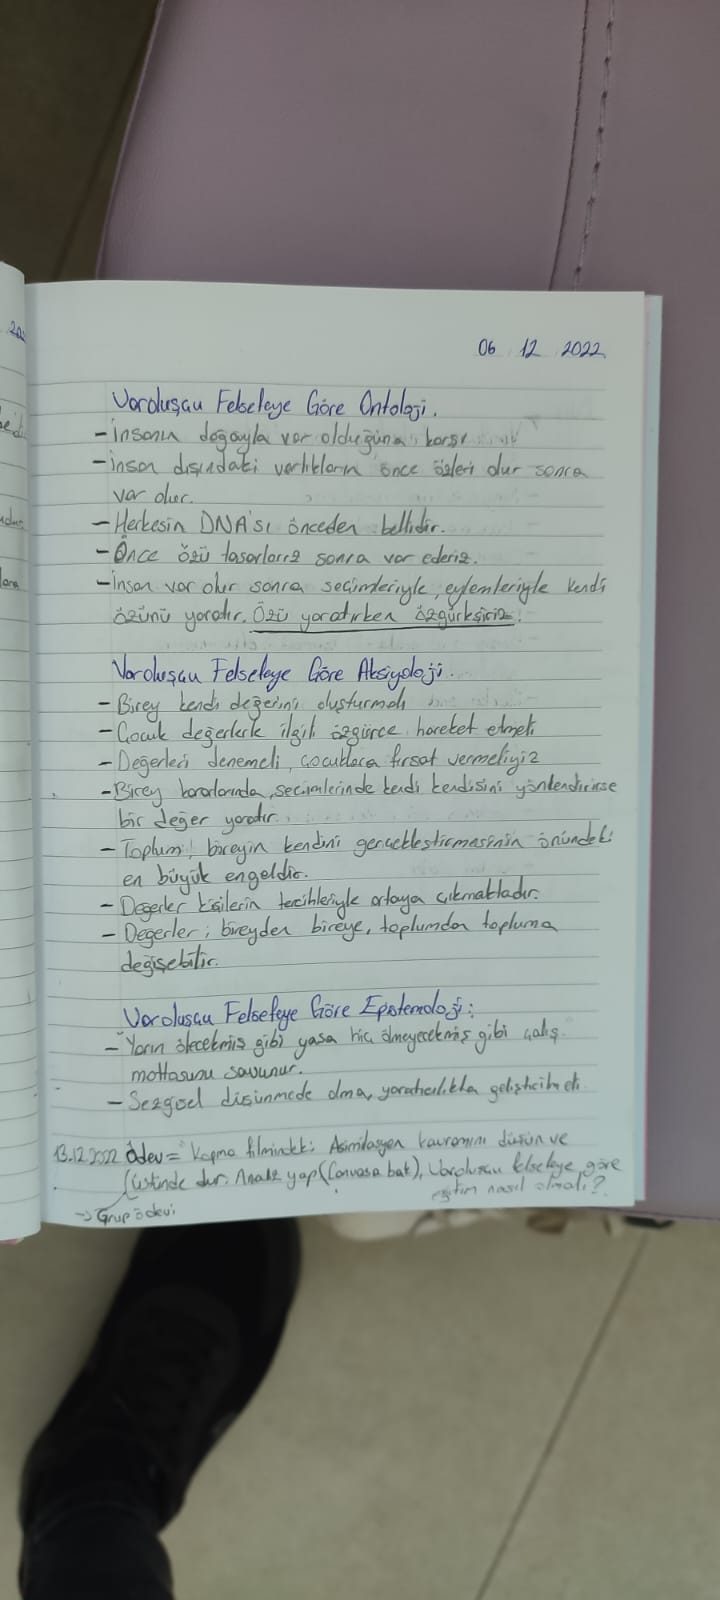 06 12 2022
Varoluşçu Felsefeye Göre Ontoloji.
- İnsanın doğayla var olduğuna karşı
- İnsan dışındaki varlıkların önce özleri olur sonra
var olur.
- Herkesin DNA'sı önceden bellidir.
- Önce özü tasarlarız sonra var ederiz.
- İnsan var olur sonra seçimleriyle, eylemleriyle kendi
özünü yaratır. Özü yaratırken özgürksiniz!
Varoluşçu Felsefeye Göre Aksiyoloji.
- Birey kendi değerini oluşturmalı
- Çocuk değerlerle ilgili özgürce hareket etmeli
- Değerleri denemeli, çocuklara fırsat vermeliyiz
- Birey kararlarında, seçimlerinde kendi kendisini yönlendirirse
bir değer yaratır.
- Toplum; bireyin kendini gerçekleştirmasinin önündeki
en büyük engeldir.
- Değerler kişilerin tercihleriyle ortaya çıkmaktadır.
- Değerler; bireyden bireye, toplumdan topluma
değişebilir.
Varoluşçu Felsefeye Göre Epistemoloji:
- "Yarın ölecekmiş gibi yaşa hiç ölmeyecekmiş gibi çalış"
mottosunu savunur.
- Sezgisel düşünmede olma, yaratıcılıkla geliştirilmeli.
13.12.2022 Ödev = filmindeki Asimilasyon kavramını düşün ve
üstünde dur. Analiz yap (Canvasa bak), Varoluşçu felsefeye göre
eğitim nasıl olmalı?
→ Grup ödevi